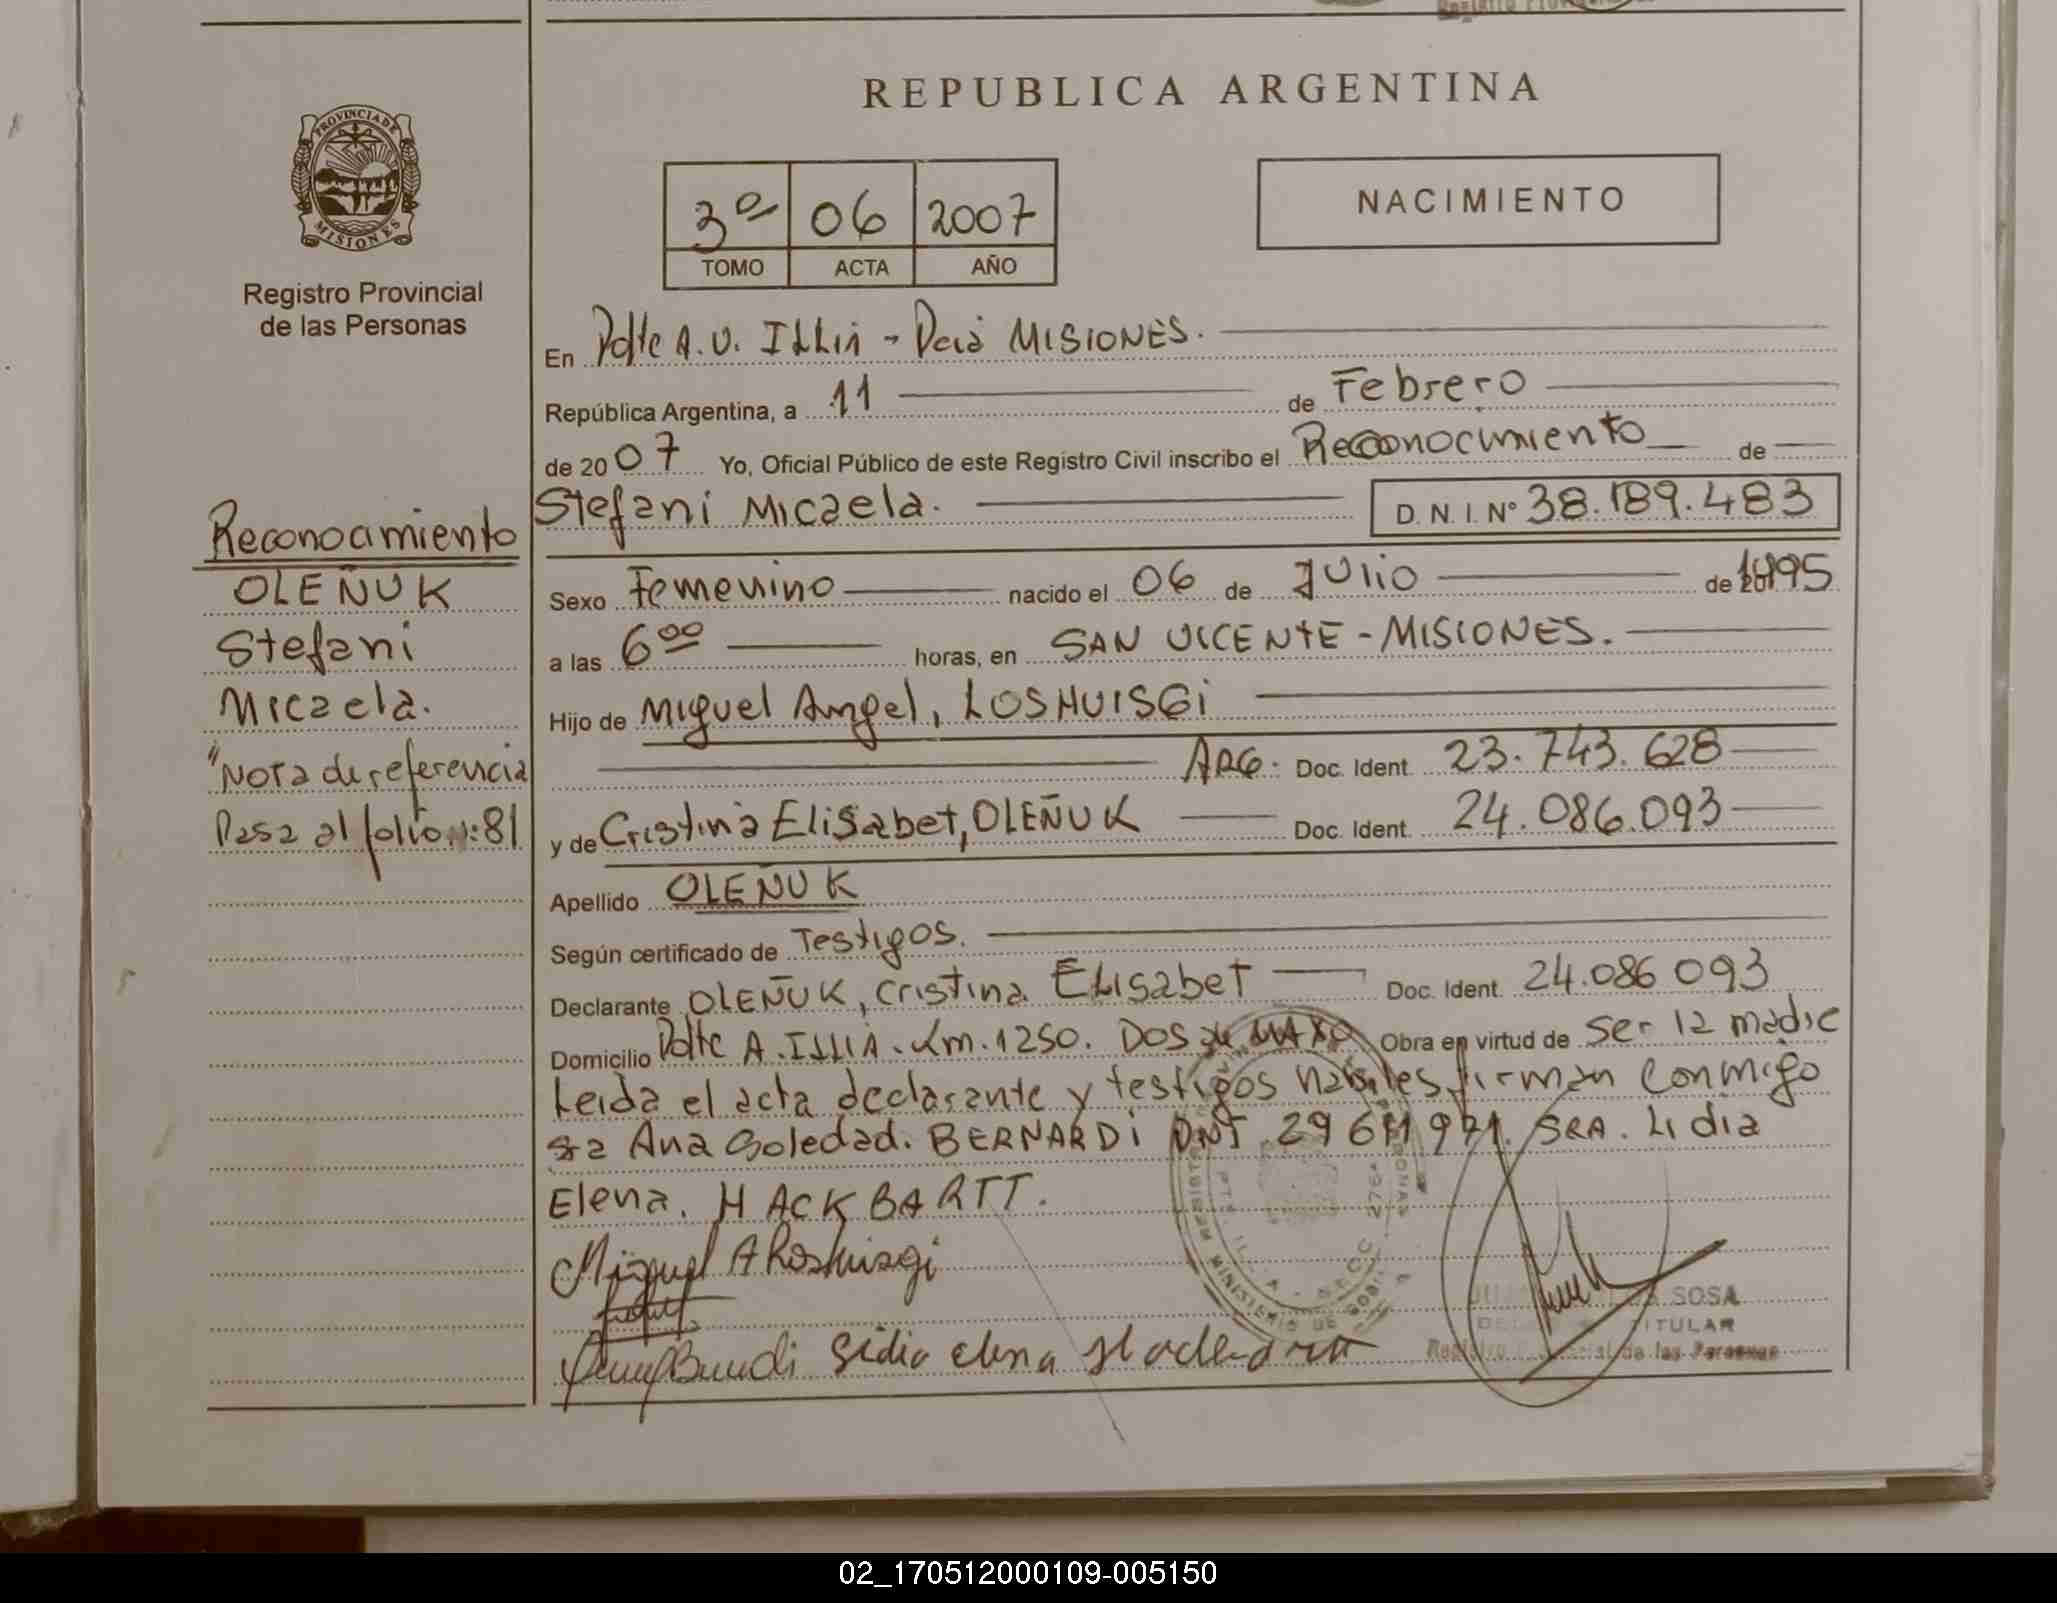 REPUBLICA ARGENTINA
PROVINCIA DE
MISIONES
Registro Provincial
de las Personas
3º 06 2007
TOMO ACTA AÑO
NACIMIENTO
En Pdte A.U. ILLIA - Dcia MISIONES.
República Argentina, a 11 de Febrero
de 2007 Yo, Oficial Público de este Registro Civil inscribo el Reconocimiento de
Stefani Micaela. D.N.I. Nº 38.189.483
Sexo Femenino nacido el 06 de Julio de 1995
a las 6ºº horas, en SAN VICENTE - MISIONES.
Hijo de Miguel Angel, LOSHUISGi
ARG. Doc. Ident. 23.743.628
y de Cristina Elisabet, OLEÑUK Doc. Ident. 24.086.093
Apellido OLEÑUK
Según certificado de Testigos.
Declarante OLEÑUK, Cristina Elisabet Doc. Ident. 24.086 093
Domicilio Pdte A. ILLIA. Km. 1250. DOS de MAYO Obra en virtud de ser la madre
Leida el acta declarante y testigos habiles firman conmigo
sra Ana Soledad. BERNARDi DNI 29 611 971. SRA. Lidia
Elena. HACKBARTT.
Miguel A
SOSA
TITULAR
Registro Provincial de las Personas
Reconocimiento
OLEÑUK
Stefani
Micaela.
"Nota de referencia
Pasa al folio n: 81
02_170512000109-005150